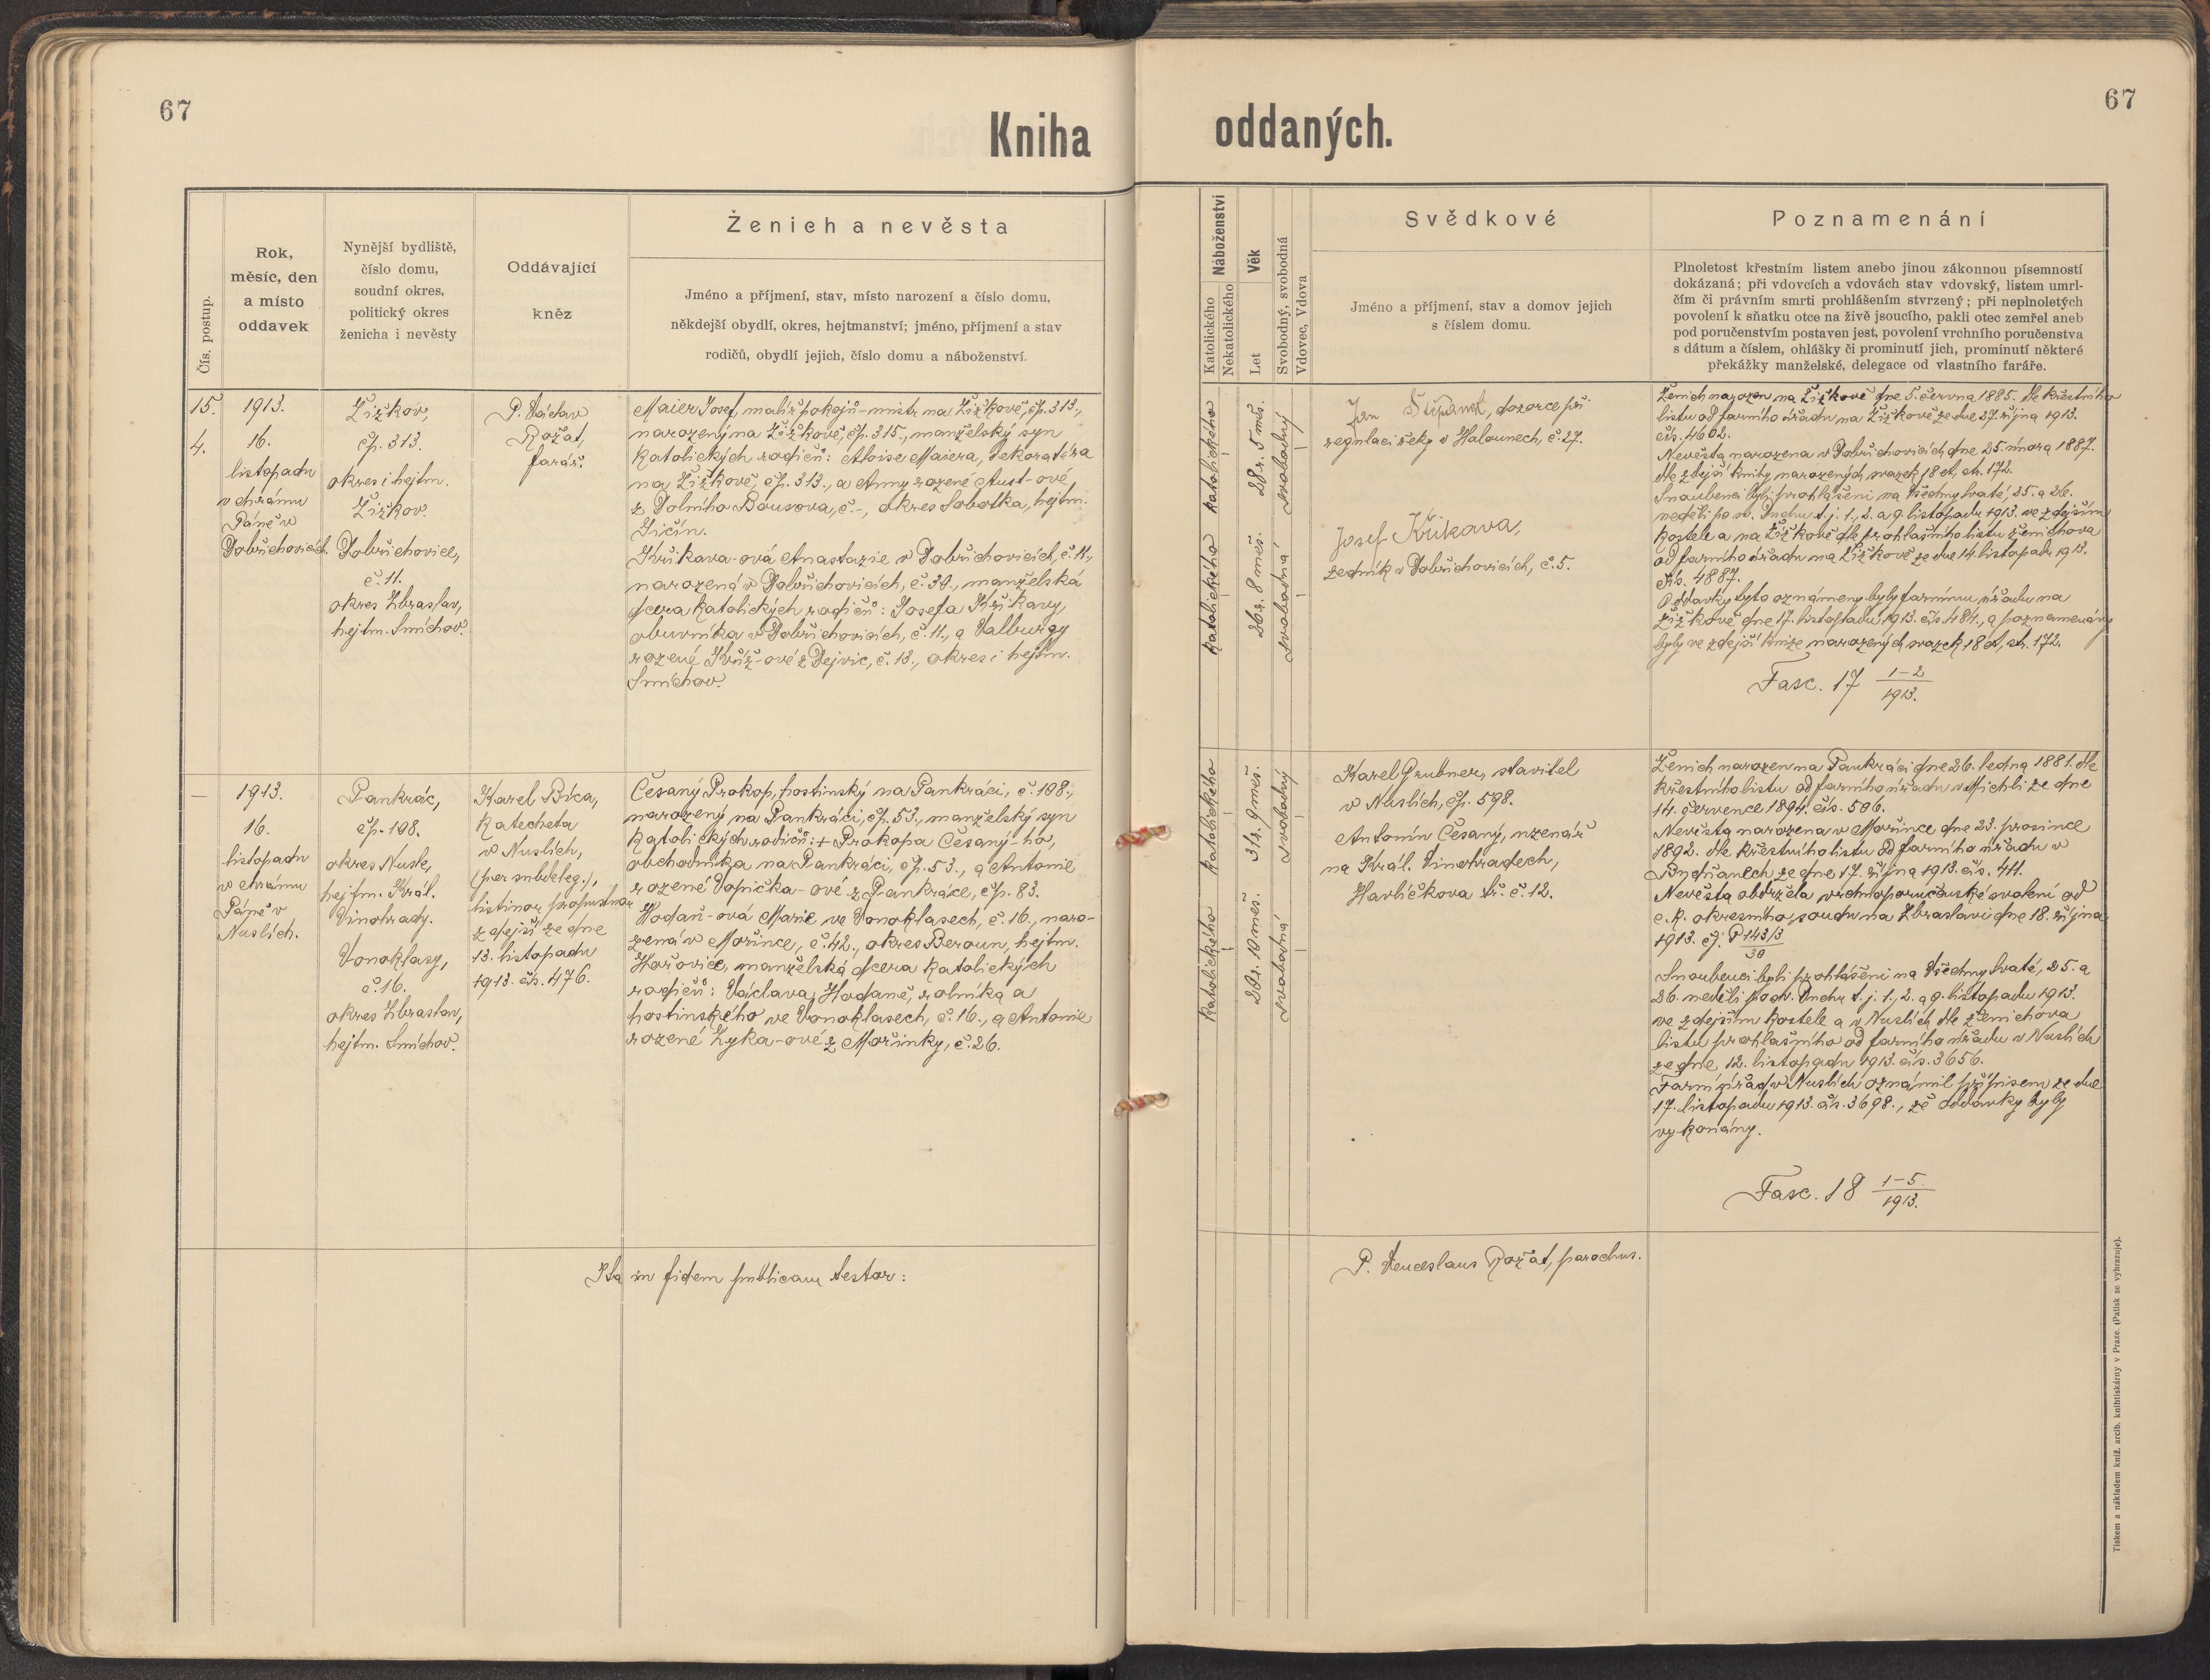 67
67
Kniha
oddaných.
Čís. postup.
Rok,
měsíc, den
a místo
oddavek
Nynější bydliště,
číslo domu,
soudní okres,
politický okres
ženicha i nevěsty
Oddávající
kněz
Ženich a nevěsta
Jméno a příjmení, stav, místo narození a číslo domu,
někdejší obydlí, okres, hejtmanství; jméno, příjmení a stav
rodičů, obydlí jejich, číslo domu a náboženství.
Náboženství
Katolického
Nekatolického
Věk
Let
Svobodný, svobodná
Vdovec, Vdova
Svědkové
Jméno a příjmení, stav a domov jejich
s číslem domu.
Poznamenání
Plnoletost křestním listem anebo jinou zákonnou písemností
dokázaná; při vdovcích a vdovách stav vdovský, listem umrl-
čím či právním smrti prohlášením stvrzený; při neplnoletých
povolení k sňatku otce na živě jsoucího, pakli otec zemřel aneb
pod poručenstvím postaven jest, povolení vrchního poručenstva
s dátum a číslem, ohlášky či prominutí jich, prominutí některé
překážky manželské, delegace od vlastního faráře.
15.
4.
1913.
16.
listopadu
v chrámu
Páně v
Dobřichovicích.
Žižkov,
čp. 313.
okres i hejtm.
Žižkov.
Dobřichovice,
č. 11.
okres Zbraslav,
hejtm. Smíchov.
P. Václav
Rožat,
farář.
Maier Josef, malíř pokojů-mistr na Žižkově, čp. 313.,
narozený na Žižkově, čp. 315., manželský syn
katolických rodičů: Aloise Maiera, dekoratéra
na Žižkově, čp. 313., a Anny rozené Aust-ové,
z Dolního Bousova, č.-, okres Sobotka, hejtm.
Jičín.
Křikava-ová Anastazie v Dobřichovicích, č. 11.,
narozená v Dobřichovicích, č. 30., manželská
dcera katolických rodičů: Josefa Křikavy,
obuvníka v Dobřichovicích, č. 11., a Valburgy
rozené Kříž-ové z Dejvic, č. 13., okres i hejtm.
Smíchov.
katolického
28 r. 5 měs.
svobodný
katolického
26 r. 8 měs.
svobodná
Jan Štěpánek, dozorce při
regulaci řeky v Halounech, č. 27.
Josef Křikava,
zedník v Dobřichovicích, č. 5.
Ženich narozen na Žižkově dne 5. června 1885. dle křestního
listu od farního úřadu na Žižkově ze dne 27. října 1913.
čís. 4602.
Nevěsta narozena v Dobřichovicích dne 25. února 1887.
dle zdejší knihy narozených svazek 18 st, str. 172.
Snoubenci byli prohlášeni na Všechny Svaté, 25. a 26.
neděli po sv. Duchu t. j. 1., 2. a 9. listopadu 1913. ve zdejším
kostele a na Žižkově dle prohlašního listu ženichova
od farního úřadu na Žižkově ze dne 14. listopadu 1913.
čís. 4887.
Oddavky tyto oznámeny byly farnímu úřadu na
Žižkově dne 17. listopadu 1913. čís. 481., a poznamenány
byly ve zdejší knize narozených svazek 18 st, str. 172.
Fasc. 17 1-2
1913.
—
1913.
16.
listopadu
v chrámu
Páně v
Nuslích.
Pankrác,
čp. 198.
okres Nusle,
hejtm. Král.
Vinohrady.
Vonoklasy,
č. 16.
okres Zbraslav,
hejtm. Smíchov.
Karel Bíca,
katecheta
v Nuslích,
(per subdeleg.),
listinou propustnou
zdejší ze dne
13. listopadu
1913. čís. 476.
Česaný Prokop, hostinský na Pankráci, č. 198.,
narozený na Pankráci, čp. 53., manželský syn
katolických rodičů: + Prokopa Česaný-ho,
obchodníka na Pankráci, čp. 53., a Antonie
rozené Vopička-ové z Pankráce, čp. 83.
Hodaň-ová Marie ve Vonoklasech, č. 16., naro-
zená v Mořince, č. 42., okres Beroun, hejtm.
Hořovice, manželská dcera katolických
rodičů: Václava Hodaně, rolníka a
hostinského ve Vonoklasech, č. 16., a Antonie
rozené Zyka-ové z Mořinky, č. 26.
katolického
31 r. 9 měs.
svobodný
katolického
20 r. 10 měs.
svobodná
Karel Grubner, stavitel
v Nuslích, čp. 598.
Antonín Česaný, uzenář
na Král. Vinohradech,
Havlíčkova tř. č. 12.
Ženich narozen na Pankráci dne 26. ledna 1881. dle
křestního listu od farního úřadu v Michli ze dne
14. července 1894. čís. 506.
Nevěsta narozena v Mořince dne 23. prosince
1892. dle křestního listu od farního úřadu v
Budňanech ze dne 17. října 1913. čís. 411.
Nevěsta obdržela vrchnoporučenské svolení od
c. k. okresního soudu na Zbraslavi dne 18. října
1913. čj. P 143/3
30
Snoubenci byli prohlášeni na Všechny Svaté, 25. a
26. neděli po sv. Duchu t. j. 1., 2. a 9. listopadu 1913.
ve zdejším kostele a v Nuslích dle ženichova
listu prohlašního od farního úřadu v Nuslích
ze dne 12. listopadu 1913. čís. 3656.
Farní úřad v Nuslích oznámil přípisem ze dne
17. listopadu 1913. čís. 3698., že oddavky byly
vykonány.
Fasc. 18 1-5.
1913.
Ita in fidem publicam testor:
P. Venceslaus Rožat, parochus.
Tiskem a nákladem kníž. arcib. knihtiskárny v Praze. (Patisk se vyhrazuje).